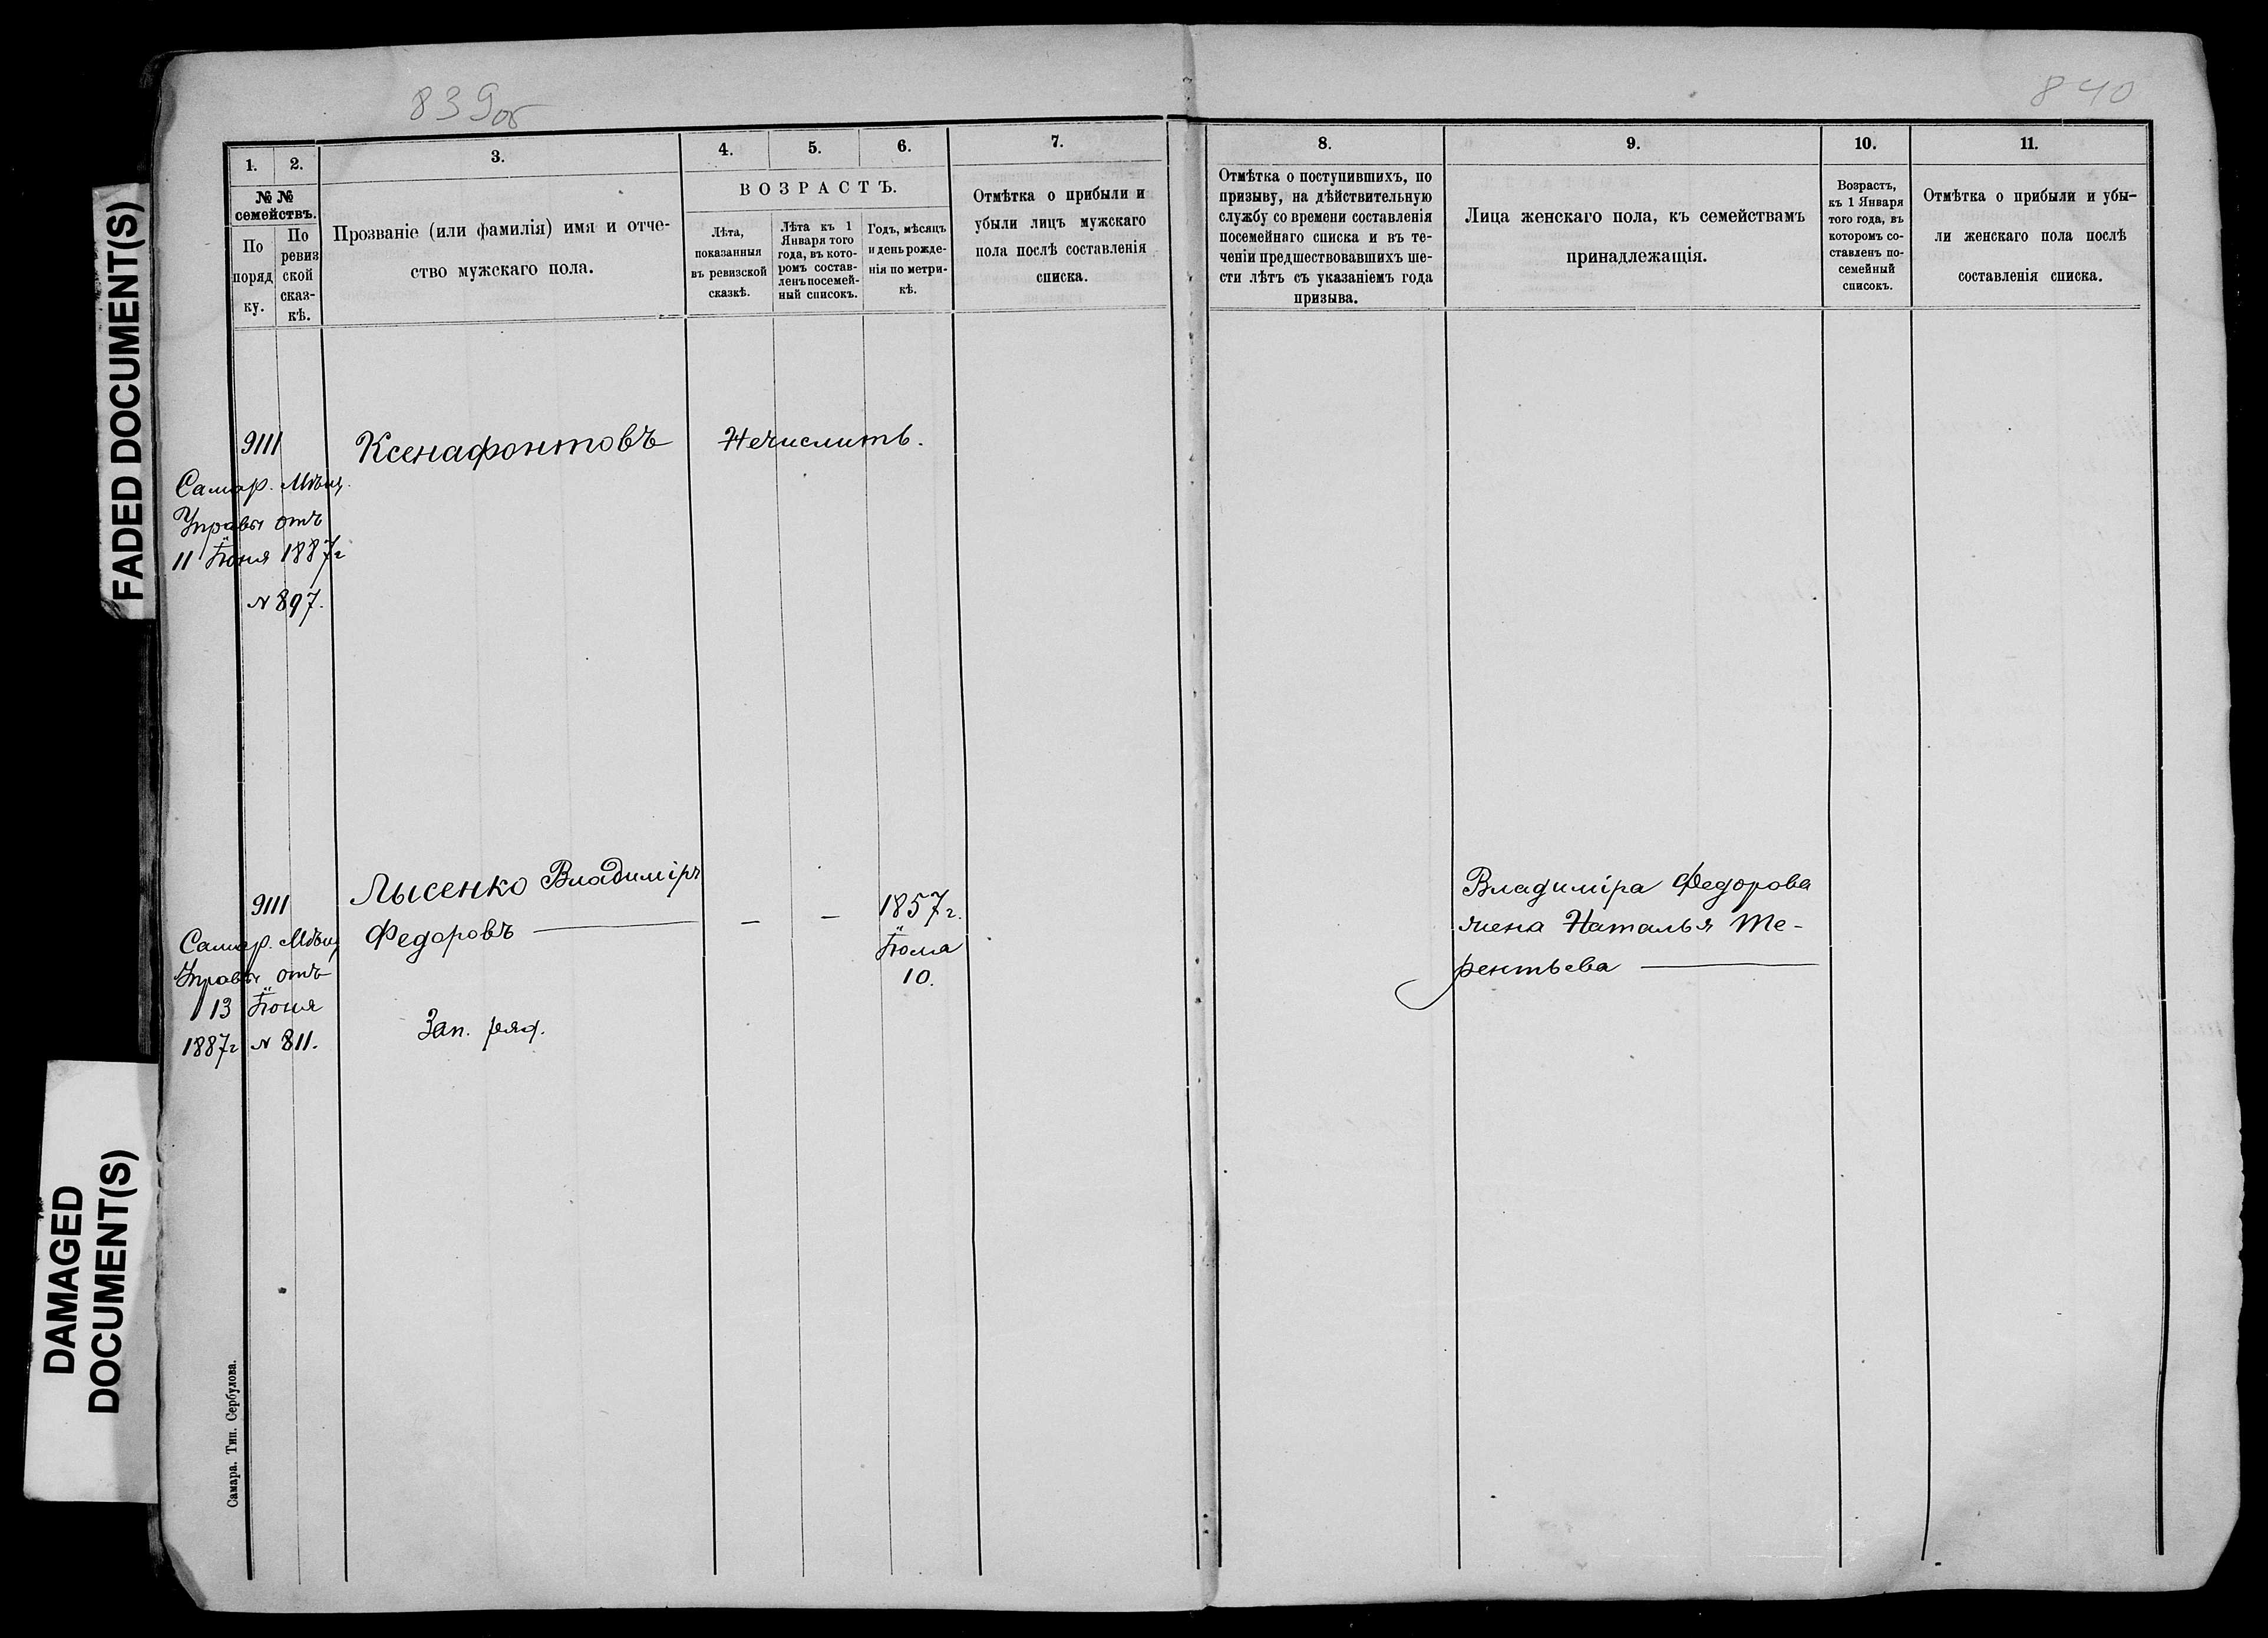 FADED DOCUMENT(S)
DAMAGED
DOCUMENT(S)
839об
840
1.
2.
3.
4.
5.
6.
7.
№ №
семействъ.
По
поряд
ку.
По
ревиз
ской
сказ-
кѣ.
Прозваніе (или фамилія) имя и отче-
ство мужскаго пола.
ВОЗРАСТЪ.
Лѣта,
показанныя
въ ревизской
сказкѣ.
Лѣта къ 1
Января того
года, въ кото-
ромъ состав-
ленъ посемей-
ный списокъ.
Годъ, мѣсяцъ
и день рожде-
нія по метри-
кѣ.
Отмѣтка о прибыли и
убыли лицъ мужскаго
пола послѣ составленія
списка.
8.
9.
10.
11.
Отмѣтка о поступившихъ, по
призыву, на дѣйствительную
службу со времени составленія
посемейнаго списка и въ те-
ченіи предшествовавшихъ ше-
сти лѣтъ съ указаніемъ года
призыва.
Лица женскаго пола, къ семействамъ
принадлежащія.
Возрастъ,
къ 1 Января
того года, въ
которомъ со-
ставленъ по-
семейный
списокъ.
Отмѣтка о прибыли и убы-
ли женскаго пола послѣ
составленія списка.
9111
Ксенафонтовъ
Нечислить.
Самар. Мѣщ.
Управы отъ
11 Іюня 1887г
№ 897.
9111
Лысенко Владиміръ
Федоровъ
— — 1857г.
Іюля
10.
Самар. Мѣщ
Управы отъ
13 Іюня
1887г № 811.
Зап. ряд.
Владиміра Федорова
жена Наталья Те-
рентьева
Самара. Тип. Сербулова.